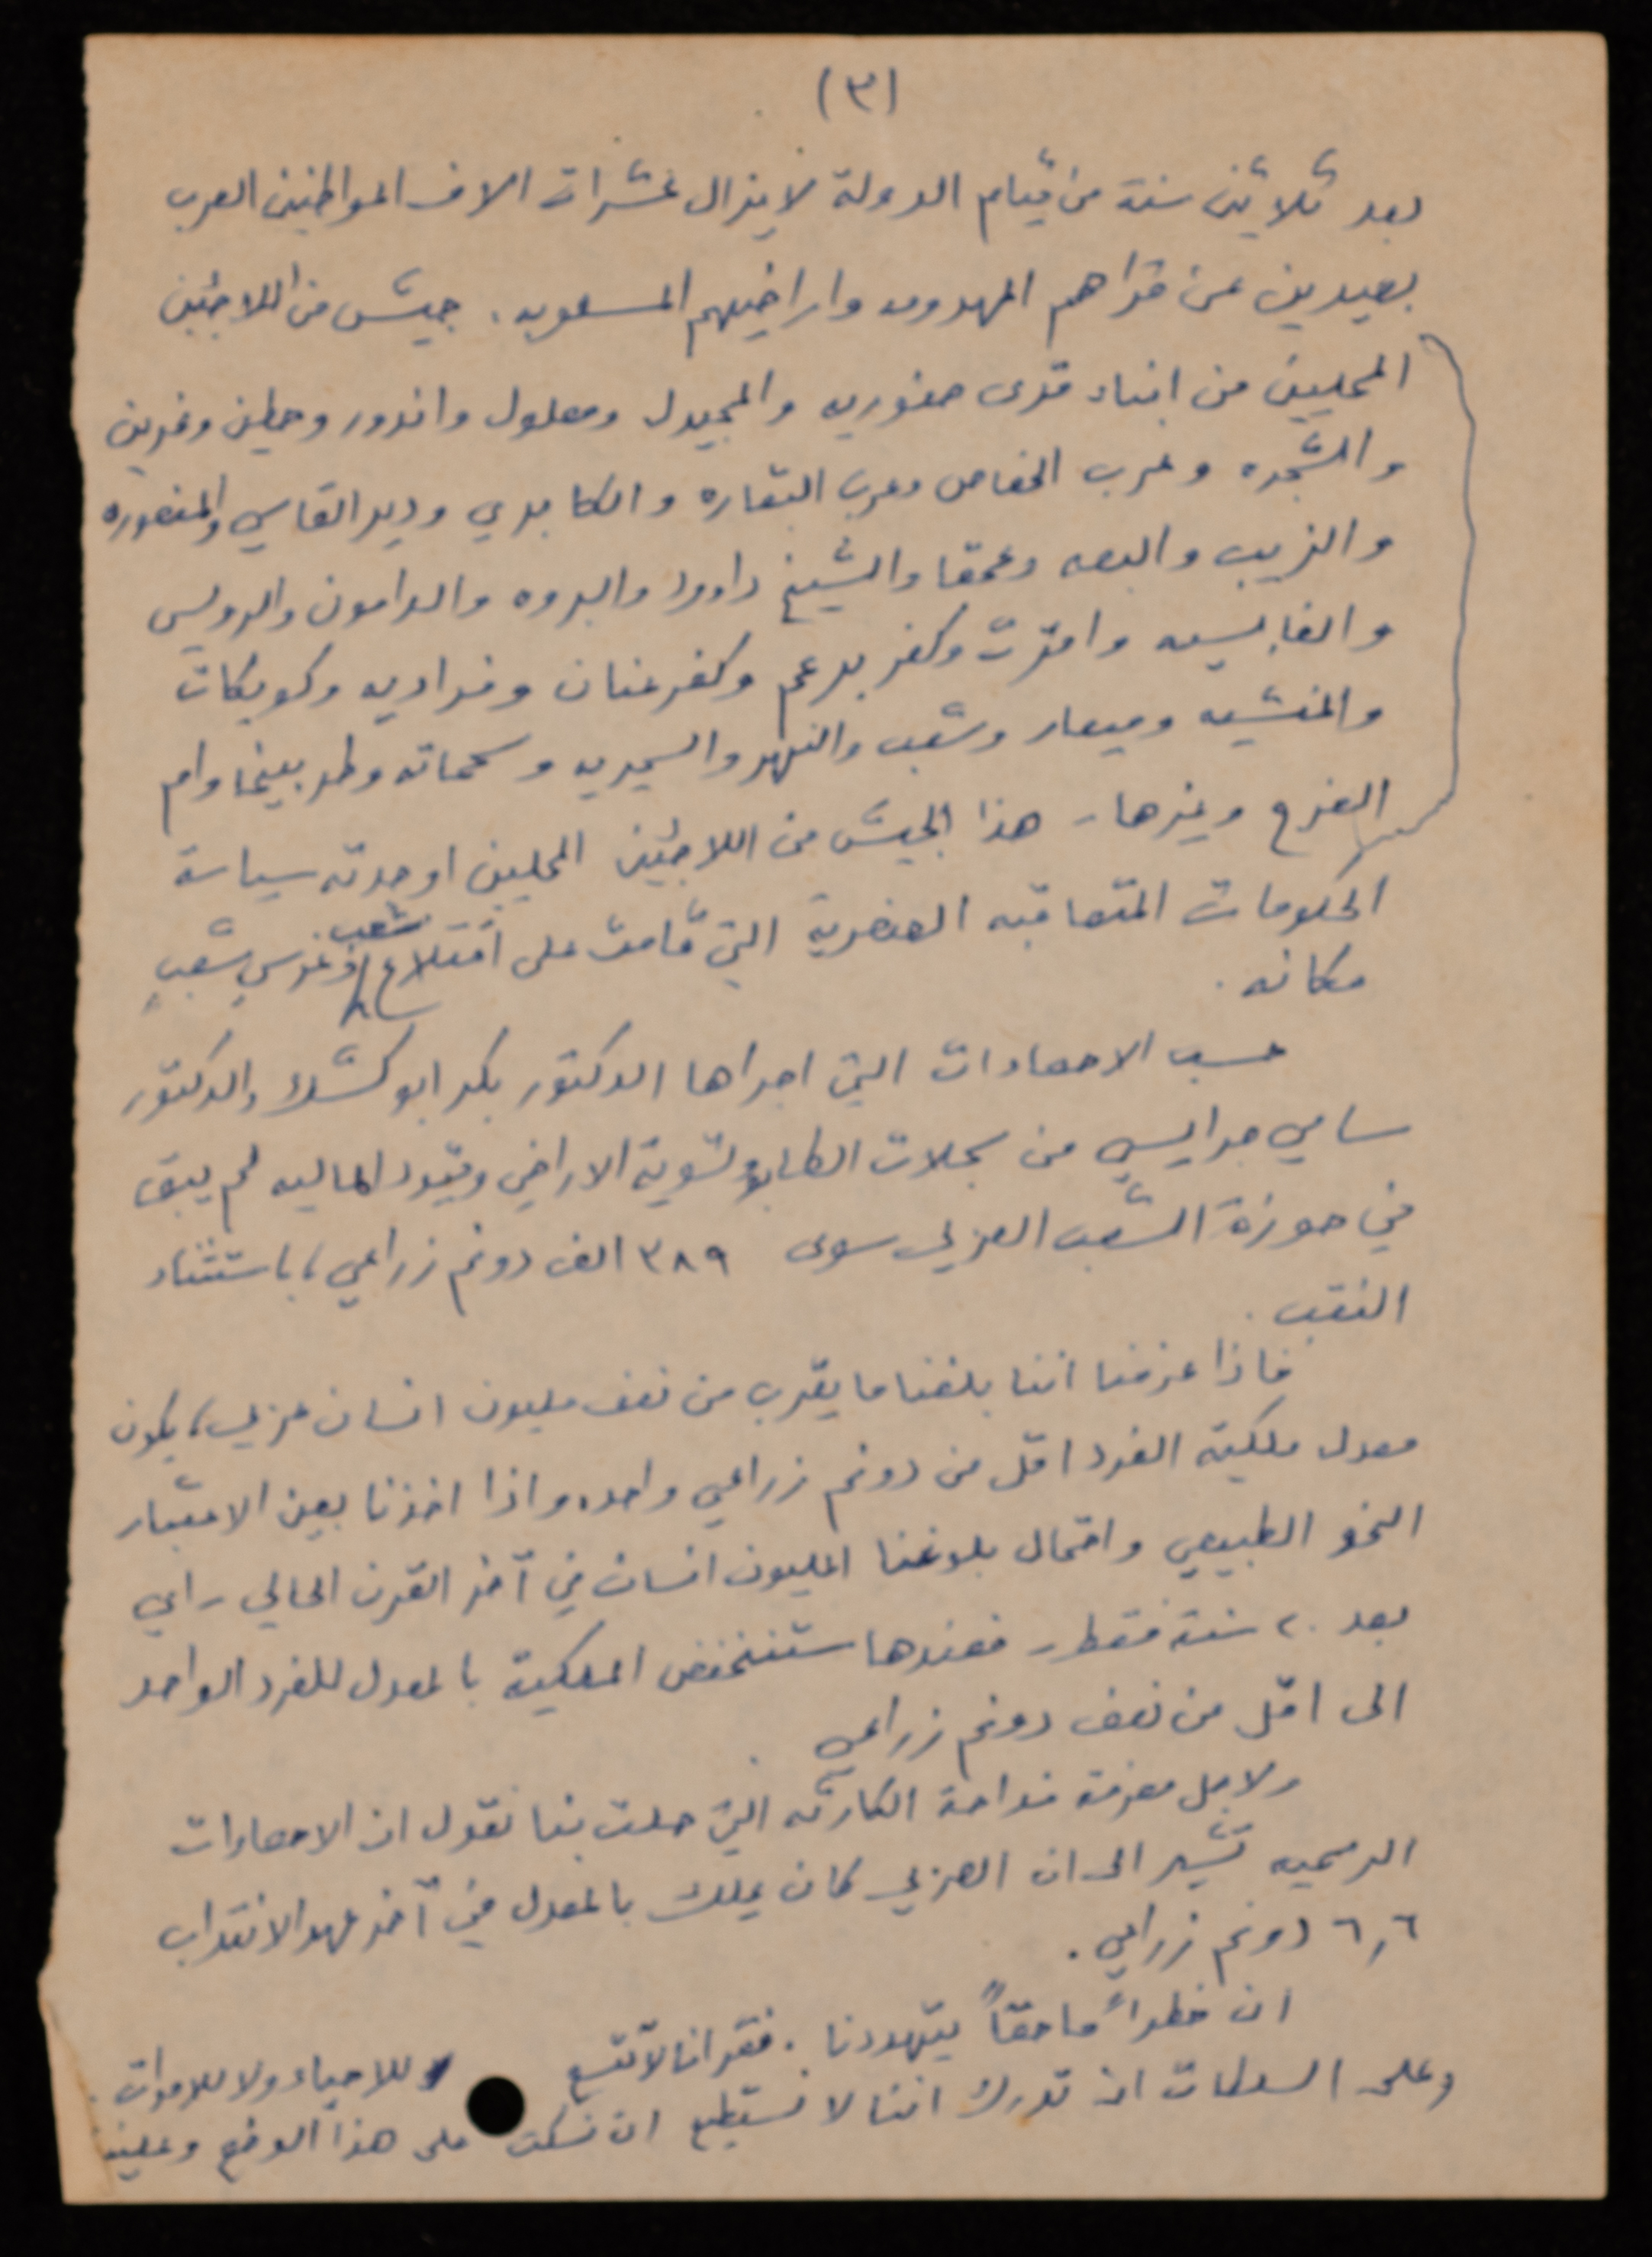 (٣)
بعد ثلاثين سنة من قيام الدولة لا يزال عشرات الاف المواطنين العرب
بعيدين عن قراهم المهدومه واراضيهم المسلوبه. جيش من اللاجئين
المحليين من ابناء قرى صفوريه والمجيدل ومعلول واندور وحطين ونمرين
والشجره وعرب الخفاص وعرب البقاره والكابري ودير القاسي والمنصوره
والزيب والبصه وعمقا والشيخ داوود والبروه والدامون والرويس
والغابسيه واقرت وكفر برعم وكفر عنان وفراديه وكويكات
والمنشيه وميعار وشعب والنهر والسميريه وسحماته وطربيخا وام
الفرج وغيرها - هذا الجيش من اللاجئين المحليين اوجدته سياسة
الحكومات المتعاقبه العنصرية التي قامت على اقتلاع شعب وغرس شعبٍ
مكانه.
حسب الاحصاءات التي اجراها الدكتور بكر ابو كشك والدكتور
سامي جرايسي من سجلات الطابو وتسوية الاراضي وقيود الماليه لم يبق
في حوزة الشعب العربي سوى ٣٨٩ الف دونم زراعي، باستثناء
النقب.
فاذا عرفنا اننا بلغنا ما يقرب من نصف مليون انسان عربي، يكون
معدل ملكية الفرد اقل من دونم زراعي واحد. واذا اخذنا بعين الاعتبار
النمو الطبيعي واحتمال بلوغنا المليون انسان في آخر القرن الحالي - اي
بعد ٢٠ سنة فقط - فعندها ستنخفض الملكية بالمعدل للفرد الواحد
الى اقل من نصف دونم زراعي.
ولاجل معرفة فداحة الكارثه التي حلت بنا نقول ان الاحصاءات
الرسميه تشير الى ان العربي كان يملك بالمعدل في آخر عهد الانتداب
٦,٦ دونم زراعي.
ان خطراً ماحقاً يتهددنا. فقرانا لا تتسع للاحياء ولا للاموات.
وعلى السلطات ان تدرك اننا لا نستطيع ان نسكت على هذا الوضع وعلينا